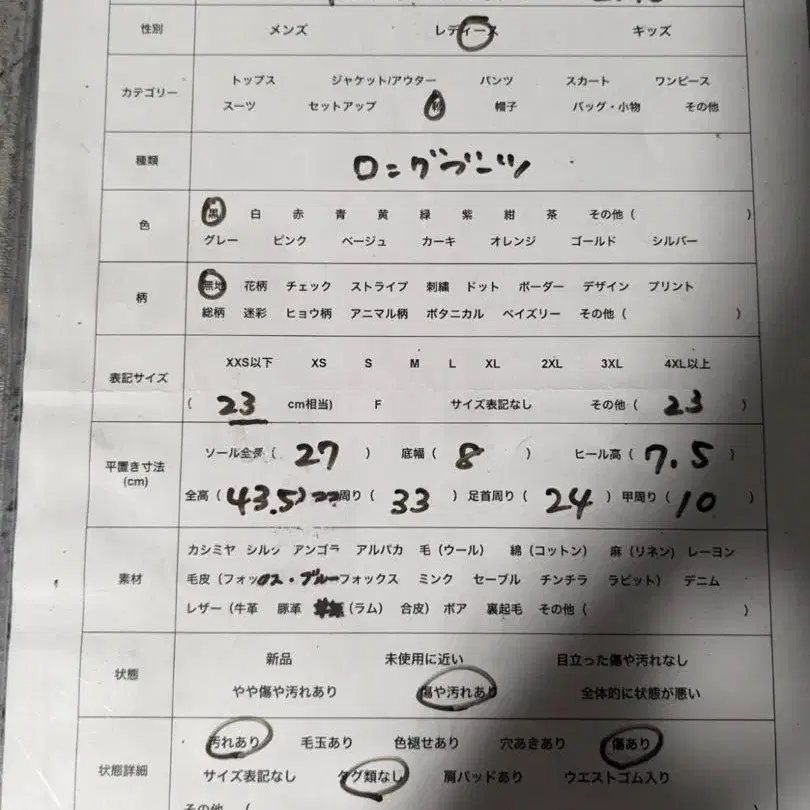 性別 メンズ レディース キッズ
カテゴリー
トップス ジャケット/アウター パンツ スカート ワンピース
スーツ セットアップ 靴 帽子 バッグ・小物 その他
種類 ロングブーツ
色
黒 白 赤 青 黄 緑 紫 紺 茶 その他 ( )
グレー ピンク ベージュ カーキ オレンジ ゴールド シルバー
柄
無地 花柄 チェック ストライプ 刺繍 ドット ボーダー デザイン プリント
総柄 迷彩 ヒョウ柄 アニマル柄 ボタニカル ペイズリー その他 ( )
表記サイズ
XXS以下 XS S M L XL 2XL 3XL 4XL以上
( 23 cm相当) F サイズ表記なし その他 ( 23 )
平置き寸法
(cm)
ソール全長 ( 27 ) 底幅 ( 8 ) ヒール高 ( 7.5 )
全高 ( 43.5 ) 周り ( 33 ) 足首周り ( 24 ) 甲周り ( 10 )
素材
カシミヤ シルク アンゴラ アルパカ 毛 (ウール) 綿 (コットン) 麻 (リネン) レーヨン
毛皮 (フォックス・ブルーフォックス ミンク セーブル チンチラ ラビット) デニム
レザー (牛革 豚革 (ラム) 合皮) ボア 裏起毛 その他 ( )
状態
新品 未使用に近い 目立った傷や汚れなし
やや傷や汚れあり 傷や汚れあり 全体的に状態が悪い
状態詳細
汚れあり 毛玉あり 色褪せあり 穴あきあり 傷あり
サイズ表記なし タグ類なし 肩パッドあり ウエストゴム入り
その他 (